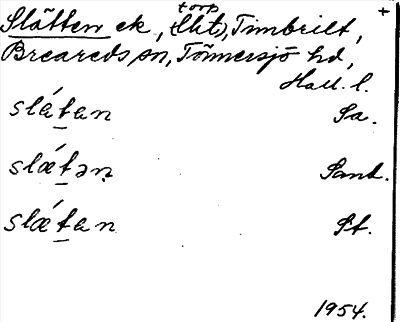 +
Slätten ek, torp (Skt), Timbrilt,
Breareds sn, Tönnersjö hd,
Hall. l.
slǽtan Sa.
slǽtən Sand.
slǽtan St.
1954.